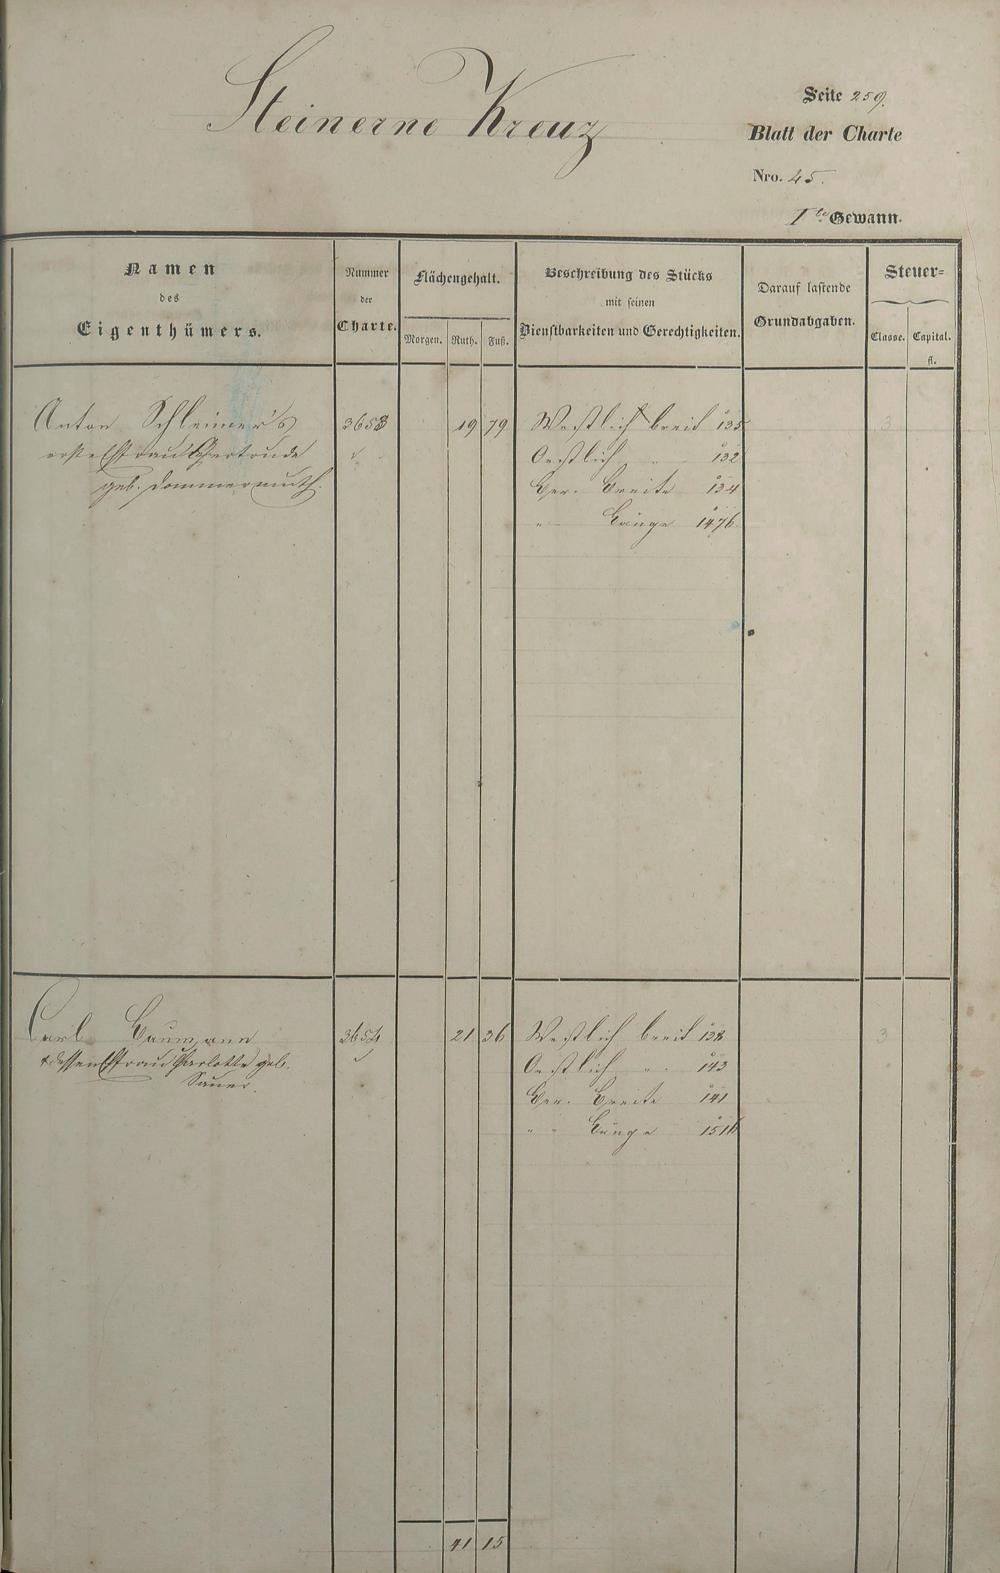 Steinerne Kreuz
Seite 259.
Blatt der Charte
Nro. 45.
I te Gewann.
Namen
des
Eigenthümers.
Nummer
der
Charte.
Flächengehalt.
Morgen. Ruth. Fuß.
Beschreibung des Stücks
mit seinen
Dienstbarkeiten und Gerechtigkeiten.
Darauf lastende
Grundabgaben.
Steuer-
Classe. Capital.
fl.
Anton Schleimer's 3653 19 79 Westlich breit 135 3
erste Ehefrau Gertrude Oestlich " 132
geb. Dommermuth. Ger. Breite 134
" Länge 1476
Carl Baumann 3654 21 36 Westlich breit 138 3
& dessen Ehefrau Charlotte geb. Oestlich " 143
Sauer. Ger. Breite 141
" " Länge 1516
41 15